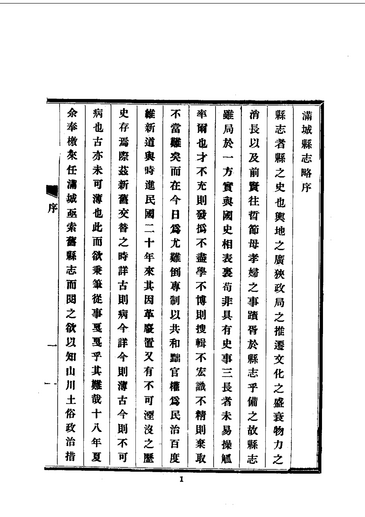 滿城縣志略序
縣志者縣之史也輿地之廣狹政局之推遷文化之盛衰物力之
消長以及前賢往哲節母孝婦之事蹟胥於縣志乎備之故縣志
雖局於一方實與國史相表裏苟非具有史事三長者未易操觚
率爾也才不充則發撝不盡學不博則搜輯不宏識不精則棄取
不當難矣而在今日爲尤難倒專制以共和黜官權爲民治百度
維新道與時進民國二十年來其因革廢置又有不可湮沒之歷
史存焉際茲新舊交替之時詳古則病今詳今則薄古今則不可
病也古亦未可薄也此而欲秉筆從事戛戛乎其難哉十八年夏
余奉檄來任滿城亟索舊縣志而閱之欲以知山川土俗政治措
序
一
1